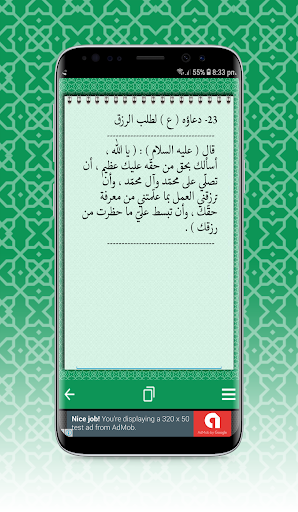 55% 8:33 pm
23- دعاؤه ( ع ) لطلب الرزق
--------------------------------
قال ( عليه السلام ) : ( يا الله ،
أسألك بحق من حقّه عليك عظيم ، أن
تصلّي على محمّد وآل محمّد ، وأن
ترزقني العمل بما علّمتني من معرفة
حقّك ، وأن تبسط عليّ ما حظرت من
رزقك ) .
--------------------------------
Nice job! You're displaying a 320 x 50
test ad from AdMob.
AdMob by Google